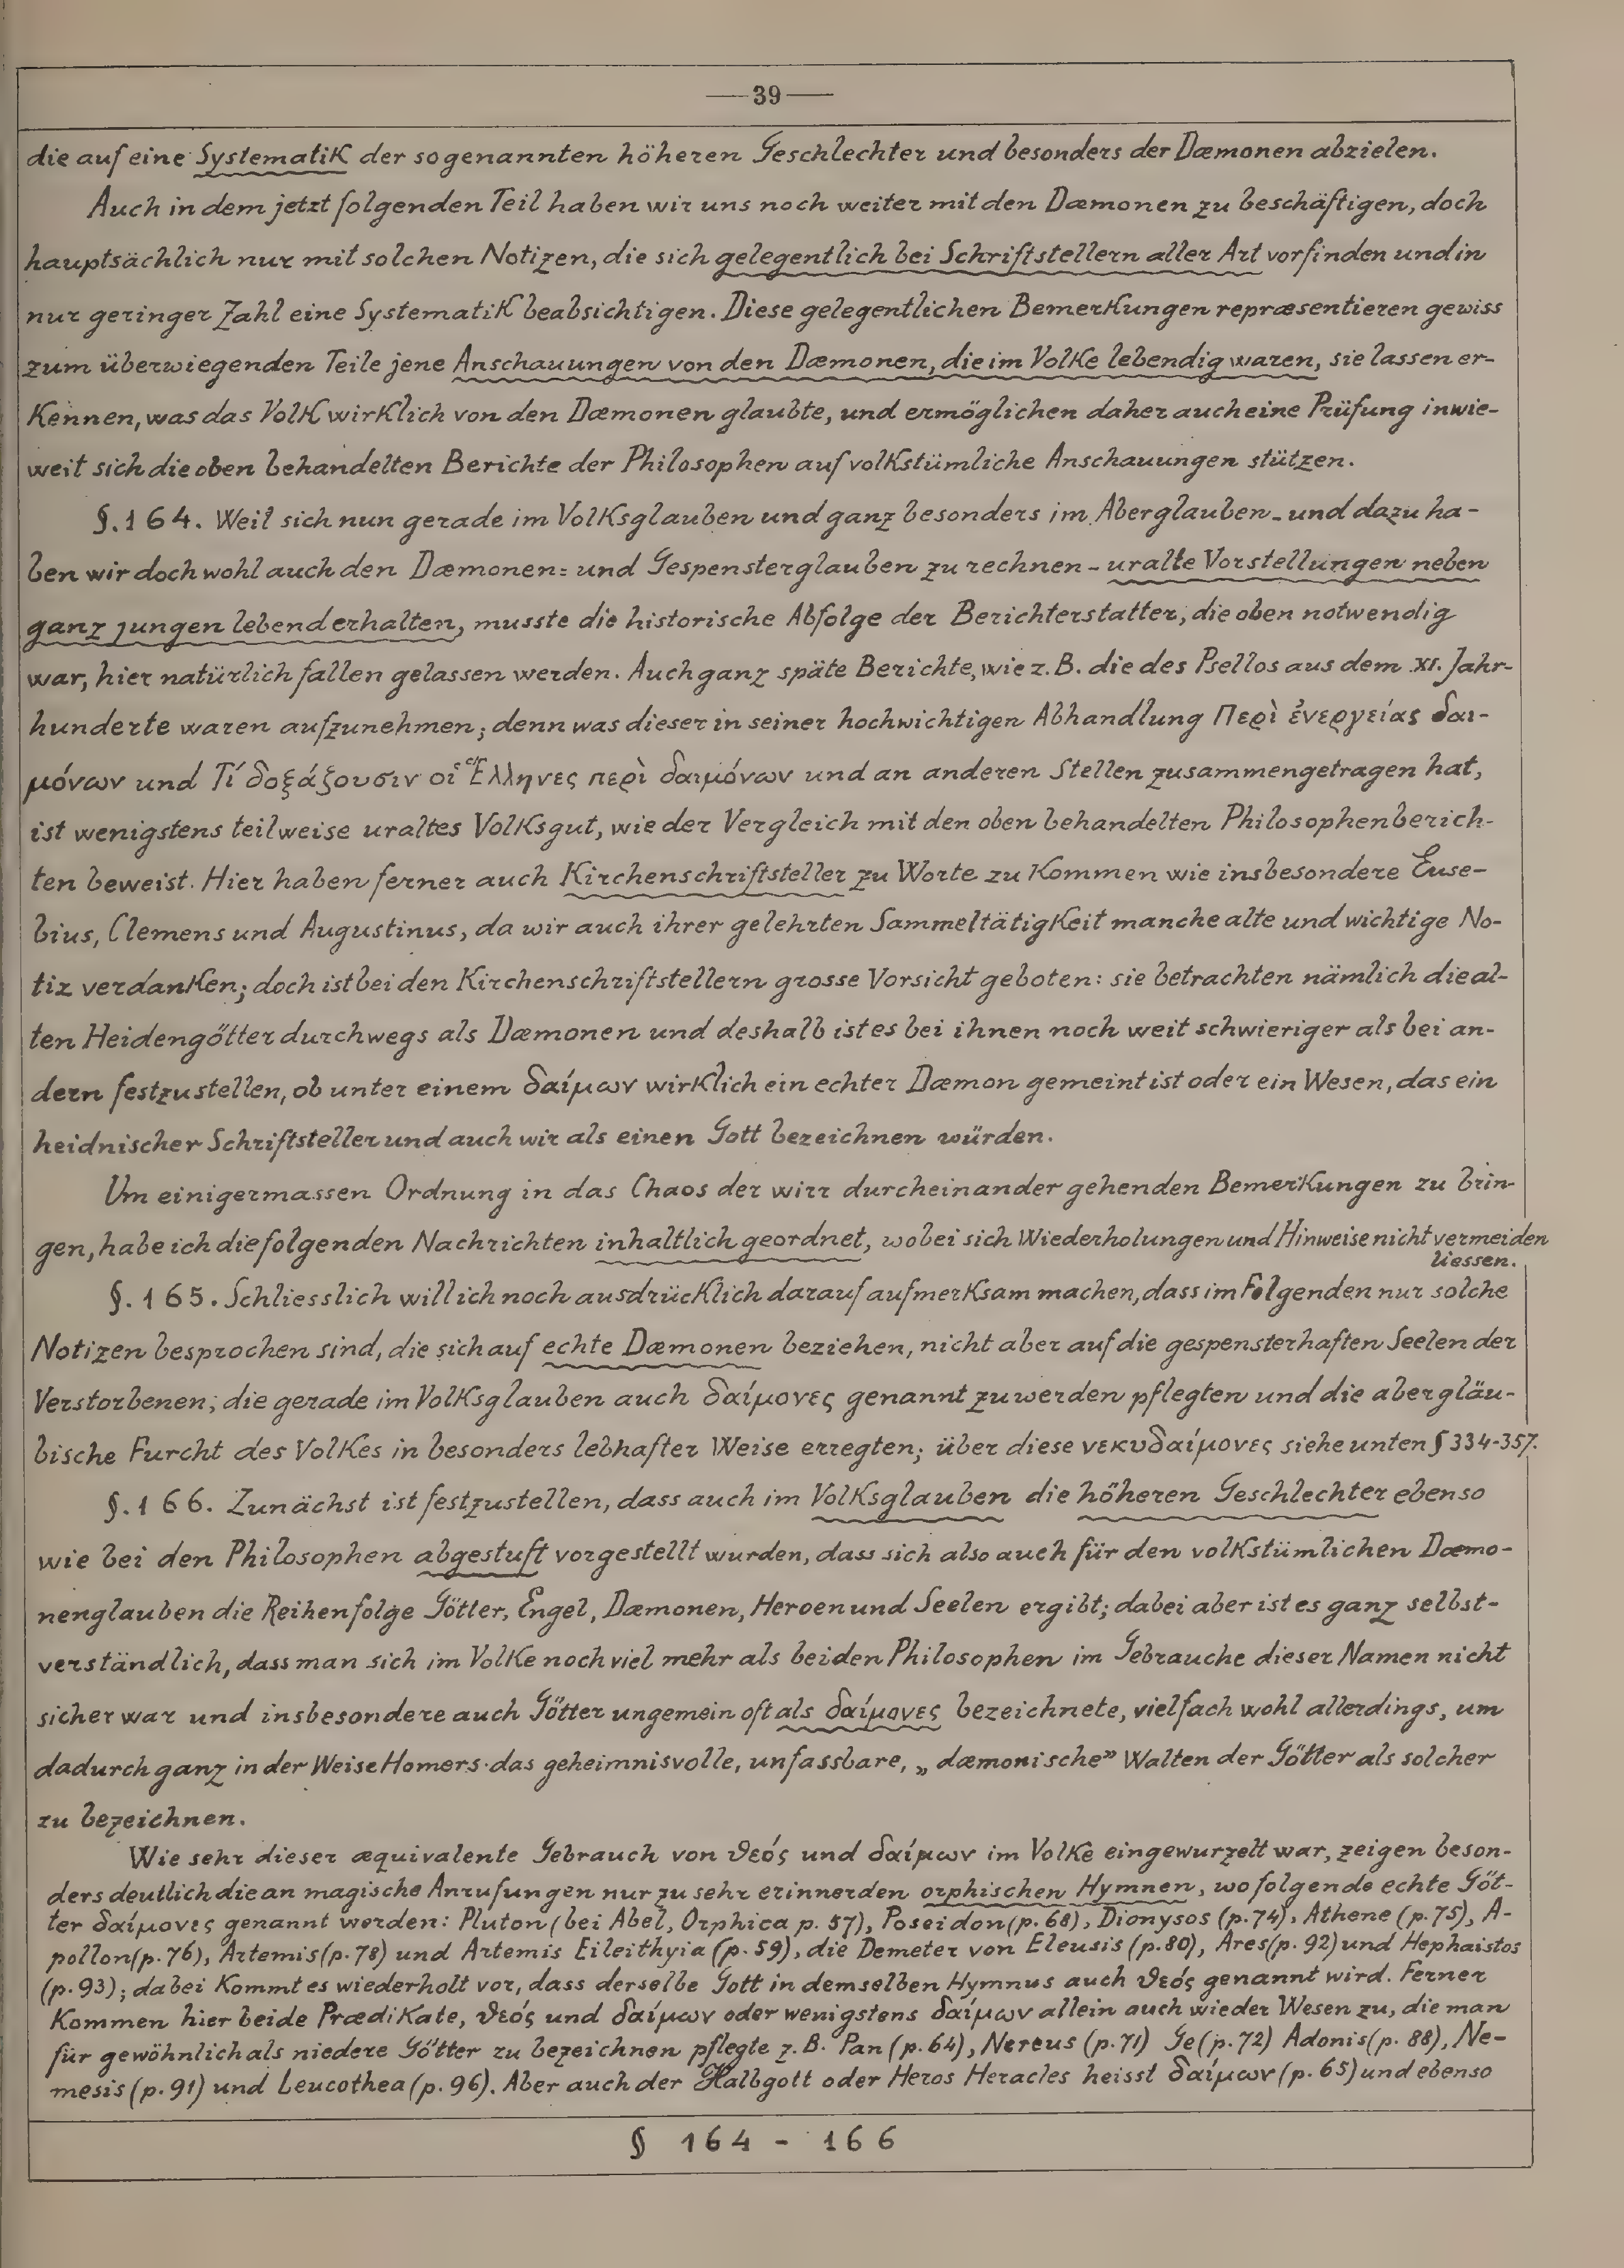 —39—
die auf eine Systematik der sogenannten höheren Geschlechter und besonders der Dæmonen abzielen.
Auch in dem jetzt folgenden Teil haben wir uns noch weiter mit den Dæmonen zu beschäftigen, doch
hauptsächlich nur mit solchen Notizen, die sich gelegentlich bei Schriftstellern aller Art vorfinden und in
nur geringer Zahl eine Systematik beabsichtigen. Diese gelegentlichen Bemerkungen repræsentieren gewiss
zum überwiegenden Teile jene Anschauungen von den Dæmonen, die im Volke lebendig waren, sie lassen er-
kennen, was das Volk wirklich von den Dæmonen glaubte, und ermöglichen daher auch eine Prüfung inwie-
weit sich die oben behandelten Berichte der Philosophen auf volkstümliche Anschauungen stützen.
§. 164. Weil sich nun gerade im Volksglauben und ganz besonders im Aberglauben - und dazu ha-
ben wir doch wohl auch den Dæmonen= und Gespensterglauben zu rechnen - uralte Vorstellungen neben
ganz jungen lebend erhalten, musste die historische Abfolge der Berichterstatter, die oben notwendig
war, hier natürlich fallen gelassen werden. Auch ganz späte Berichte, wie z. B. die des Psellos aus dem XI. Jahr-
hunderte waren aufzunehmen; denn was dieser in seiner hochwichtigen Abhandlung Περὶ ἐνεργείας δαι-
μόνων und Τί δοξάζουσιν οἱ Ἕλληνες περὶ δαιμόνων und an anderen Stellen zusammengetragen hat,
ist wenigstens teilweise uraltes Volksgut, wie der Vergleich mit den oben behandelten Philosophenberich-
ten beweist. Hier haben ferner auch Kirchenschriftsteller zu Worte zu kommen wie insbesondere Euse-
bius, Clemens und Augustinus, da wir auch ihrer gelehrten Sammeltätigkeit manche alte und wichtige No-
tiz verdanken; doch ist bei den Kirchenschriftstellern grosse Vorsicht geboten: sie betrachten nämlich die al-
ten Heidengötter durchwegs als Dæmonen und deshalb ist es bei ihnen noch weit schwieriger als bei an-
dern festzustellen, ob unter einem δαίμων wirklich ein echter Dæmon gemeint ist oder ein Wesen, das ein
heidnischer Schriftsteller und auch wir als einen Gott bezeichnen würden.
Um einigermassen Ordnung in das Chaos der wirr durcheinander gehenden Bemerkungen zu brin-
gen, habe ich die folgenden Nachrichten inhaltlich geordnet, wobei sich Wiederholungen und Hinweise nicht vermeiden
liessen.
§. 165. Schliesslich will ich noch ausdrücklich darauf aufmerksam machen, dass im Folgenden nur solche
Notizen besprochen sind, die sich auf echte Dæmonen beziehen, nicht aber auf die gespensterhaften Seelen der
Verstorbenen, die gerade im Volksglauben auch δαίμονες genannt zu werden pflegten und die abergläu-
bische Furcht des Volkes in besonders lebhafter Weise erregten; über diese νεκυδαίμονες siehe unten § 334-357.
§. 166. Zunächst ist festzustellen, dass auch im Volksglauben die höheren Geschlechter ebenso
wie bei den Philosophen abgestuft vorgestellt wurden, dass sich also auch für den volkstümlichen Dæmo-
nenglauben die Reihenfolge Götter, Engel, Dæmonen, Heroen und Seelen ergibt; dabei aber ist es ganz selbst-
verständlich, dass man sich im Volke noch viel mehr als bei den Philosophen im Gebrauche dieser Namen nicht
sicher war und insbesondere auch Götter ungemein oft als δαίμονες bezeichnete, vielfach wohl allerdings, um
dadurch ganz in der Weise Homers das geheimnisvolle, unfassbare, „dæmonische” Walten der Götter als solcher
zu bezeichnen.
Wie sehr dieser æquivalente Gebrauch von θεός und δαίμων im Volke eingewurzelt war, zeigen beson-
ders deutlich die an magische Anrufungen nur zu sehr erinnerden orphischen Hymnen, wo folgende echte Göt-
ter δαίμονες genannt werden: Pluton (bei Abel, Orphica p. 57), Poseidon (p. 68), Dionysos (p. 74), Athene (p. 75), A-
pollon (p. 76), Artemis (p. 78) und Artemis Eileithyia (p. 59), die Demeter von Eleusis (p. 80), Ares (p. 92) und Hephaistos
(p. 93); dabei kommt es wiederholt vor, dass derselbe Gott in demselben Hymnus auch θεός genannt wird. Ferner
kommen hier beide Prædikate, θεός und δαίμων oder wenigstens δαίμων allein auch wieder Wesen zu, die man
für gewöhnlich als niedere Götter zu bezeichnen pflegte z. B. Pan (p. 64), Nereus (p. 71) Ge (p. 72) Adonis (p. 88), Ne-
mesis (p. 91) und Leucothea (p. 96). Aber auch der Halbgott oder Heros Heracles heisst δαίμων (p. 65) und ebenso
§ 164 - 166